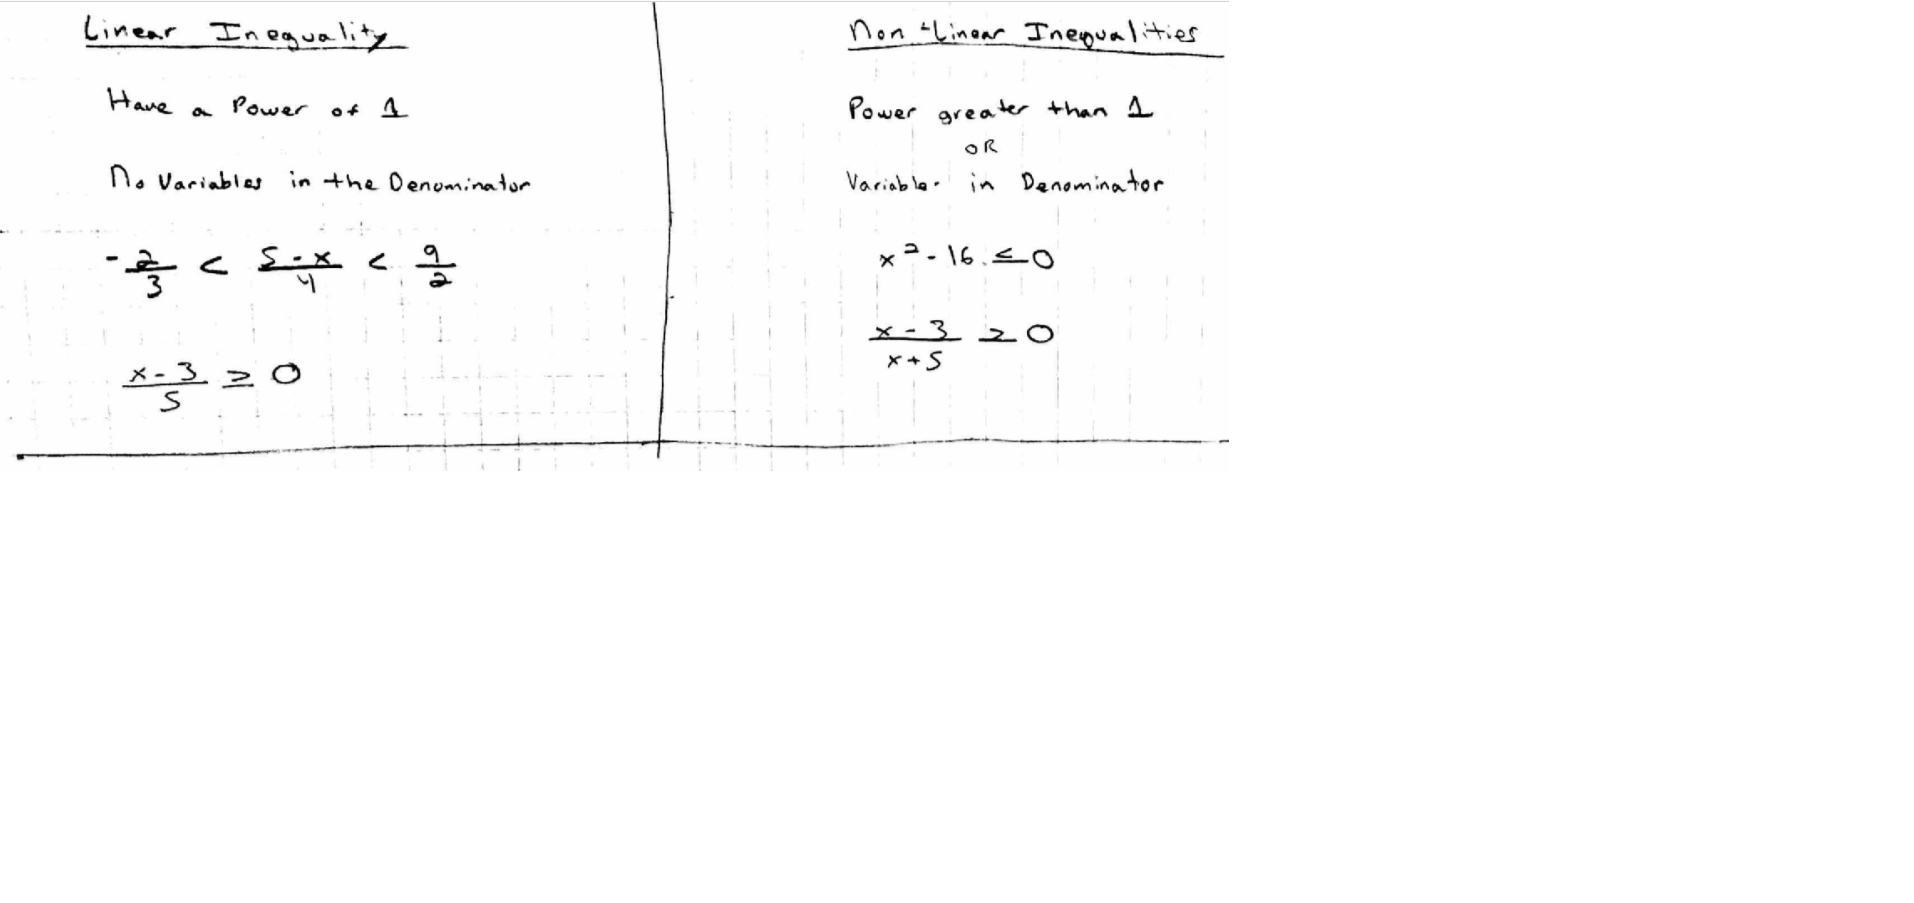 Linear Inequality
Have a Power of 1
No Variables in the Denominator
-2/3 < 5-x/4 < 9/2
x-3/5 ≥ 0
Non-Linear Inequalities
Power greater than 1
OR
Variable in Denominator
x²-16 ≤ 0
x-3/x+5 ≥ 0